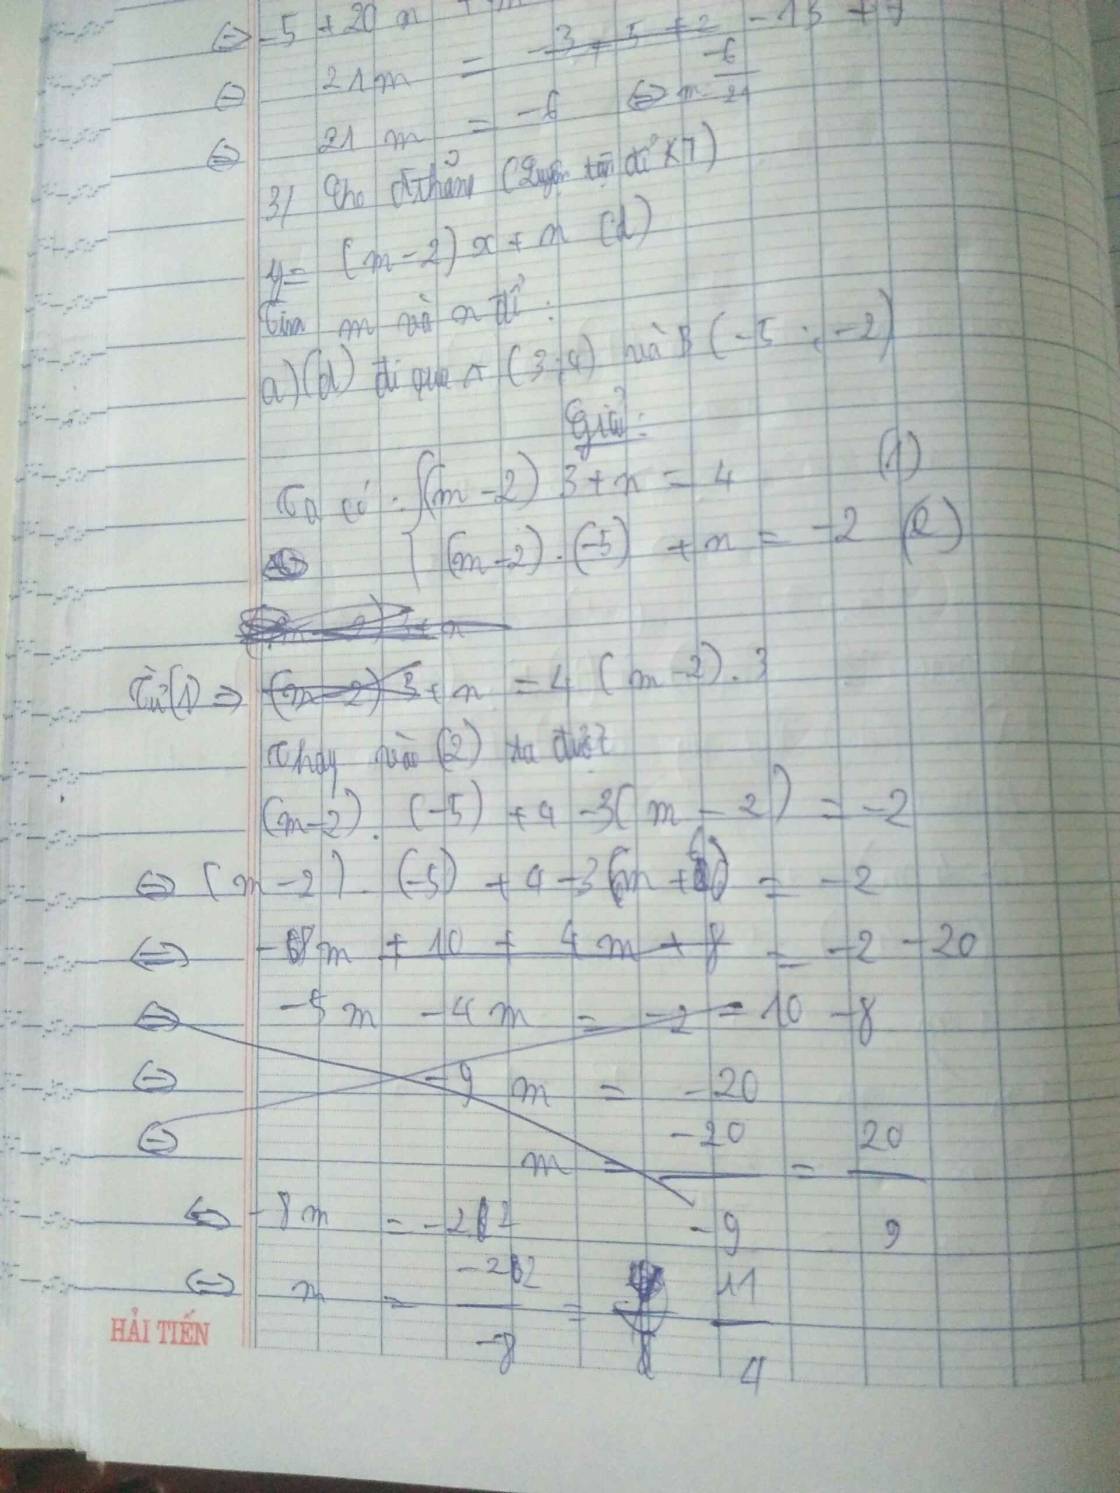 ⇔ -5 + 20 m
-3 + 5 + 2 - 15 + 7
⇔ 21m =
⇔ 21 m = -6 ⇔ m = -6/21
3) Cho đ thẳng (Quyển bộ đề K7)
y = (m-2)x + n (d)
Tìm m và n để :
a) (d) đi qua A (3;4) và B (-5 ; -2)
Giải:
Ta có : { (m-2) 3 + n = 4 (1)
(m-2) . (-5) + n = -2 (2)
Từ (1) ⇒ n = 4 (m-2).3
Thay vào (2) ta được
(m-2) . (-5) + 4 - 3(m - 2) = -2
⇔ (m-2) . (-5) + 4 - 3m + 6 = -2
⇔ -8m = -2 - 20
⇔ -5m - 4m = -2 - 10 - 8
⇔ -9 m = -20
⇔ m = -20/-9 = 20/9
⇔ -8m = -22
⇔ m = -22/-8 = 11/4
HẢI TIẾN